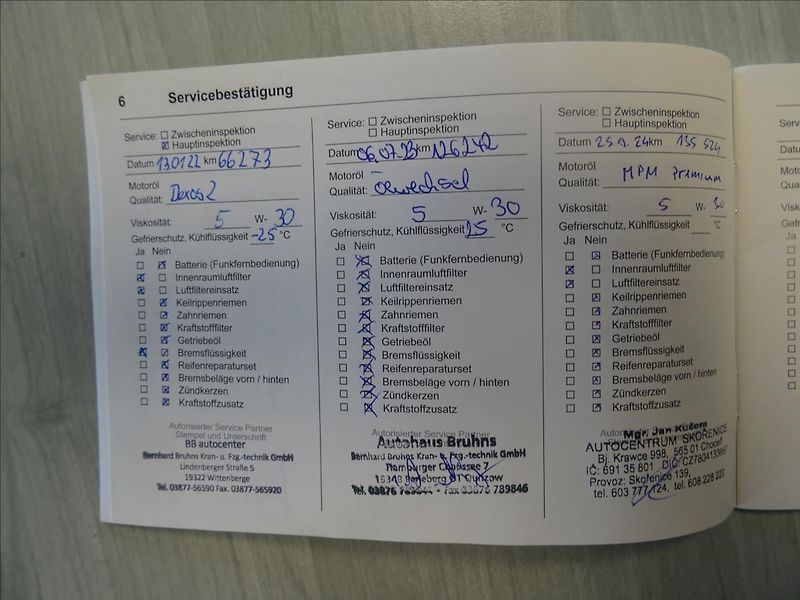 6 Servicebestätigung
Service: Zwischeninspektion
Hauptinspektion
Datum 130122 km 66273
Motoröl
Qualität: Dexos2
Viskosität: 5 W- 30
Gefrierschutz, Kühlflüssigkeit -25 °C
Ja Nein
Batterie (Funkfernbedienung)
Innenraumluftfilter
Luftfiltereinsatz
Keilrippenriemen
Zahnriemen
Kraftstofffilter
Getriebeöl
Bremsflüssigkeit
Reifenreparaturset
Bremsbeläge vorn / hinten
Zündkerzen
Kraftstoffzusatz
Autorisierter Service Partner
Stempel und Unterschrift
BB autocenter
Bernhard Bruhns Kran- u. Fzg.-technik GmbH
Lindenberger Straße 5
19322 Wittenberge
Tel. 03877-56590 Fax. 03877-565920
Service: Zwischeninspektion
Hauptinspektion
Datum 06.07.23 km 126242
Motoröl
Qualität: Ölwechsel
Viskosität: 5 W- 30
Gefrierschutz, Kühlflüssigkeit 25 °C
Ja Nein
Batterie (Funkfernbedienung)
Innenraumluftfilter
Luftfiltereinsatz
Keilrippenriemen
Zahnriemen
Kraftstofffilter
Getriebeöl
Bremsflüssigkeit
Reifenreparaturset
Bremsbeläge vorn / hinten
Zündkerzen
Kraftstoffzusatz
Autorisierter Service Partner
Autohaus Bruhns
Bernhard Bruhns Kran- Fzg.-technik GmbH
Chaussee 7
OT
Tel. 03876 Fax 03876 789846
Service: Zwischeninspektion
Hauptinspektion
Datum 25 9. 24 km 135 524
Motoröl
Qualität: MPM Premium
Viskosität: 5 W- 30
Gefrierschutz, Kühlflüssigkeit °C
Ja Nein
Batterie (Funkfernbedienung)
Innenraumluftfilter
Luftfiltereinsatz
Keilrippenriemen
Zahnriemen
Kraftstofffilter
Getriebeöl
Bremsflüssigkeit
Reifenreparaturset
Bremsbeläge vorn / hinten
Zündkerzen
Kraftstoffzusatz
Mgr. Jan Kučera
AUTOCENTRUM SKOŘENICE
Bj. Krawce 998, 565 01 Choceň
IČ: 691 35 801
Provoz: Skořenice 139,
tel. 603 777 124, tel. 608 228 220